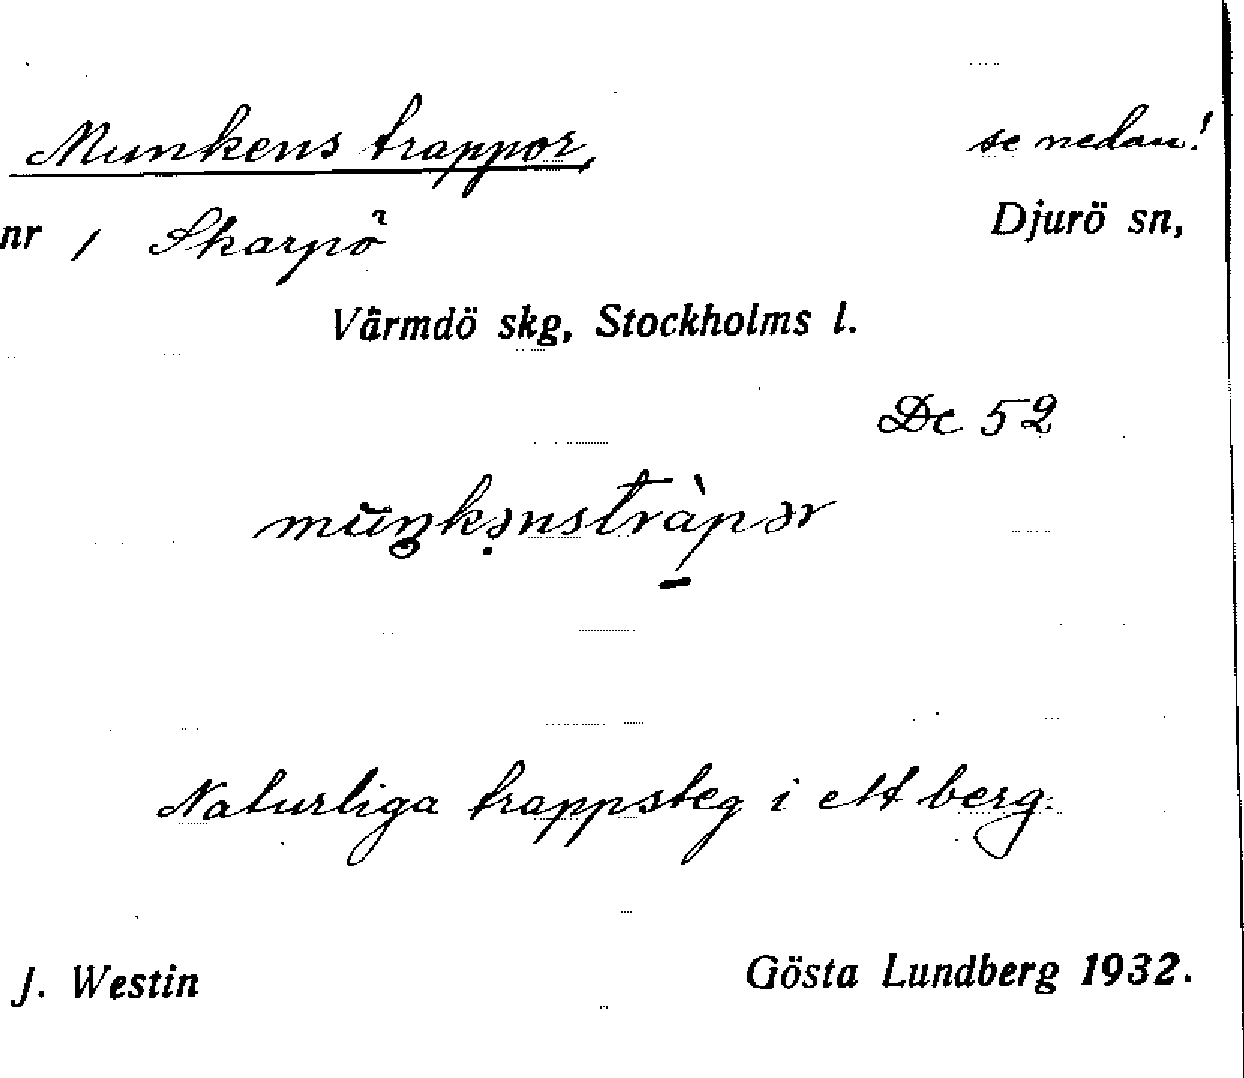 Munkens trappor, se nedan!
nr 1 Skarpö Djurö sn,
Värmdö skg, Stockholms l.
Dc 52
muŋkənstràpər
Naturliga trappsteg i ett berg.
J. Westin Gösta Lundberg 1932.